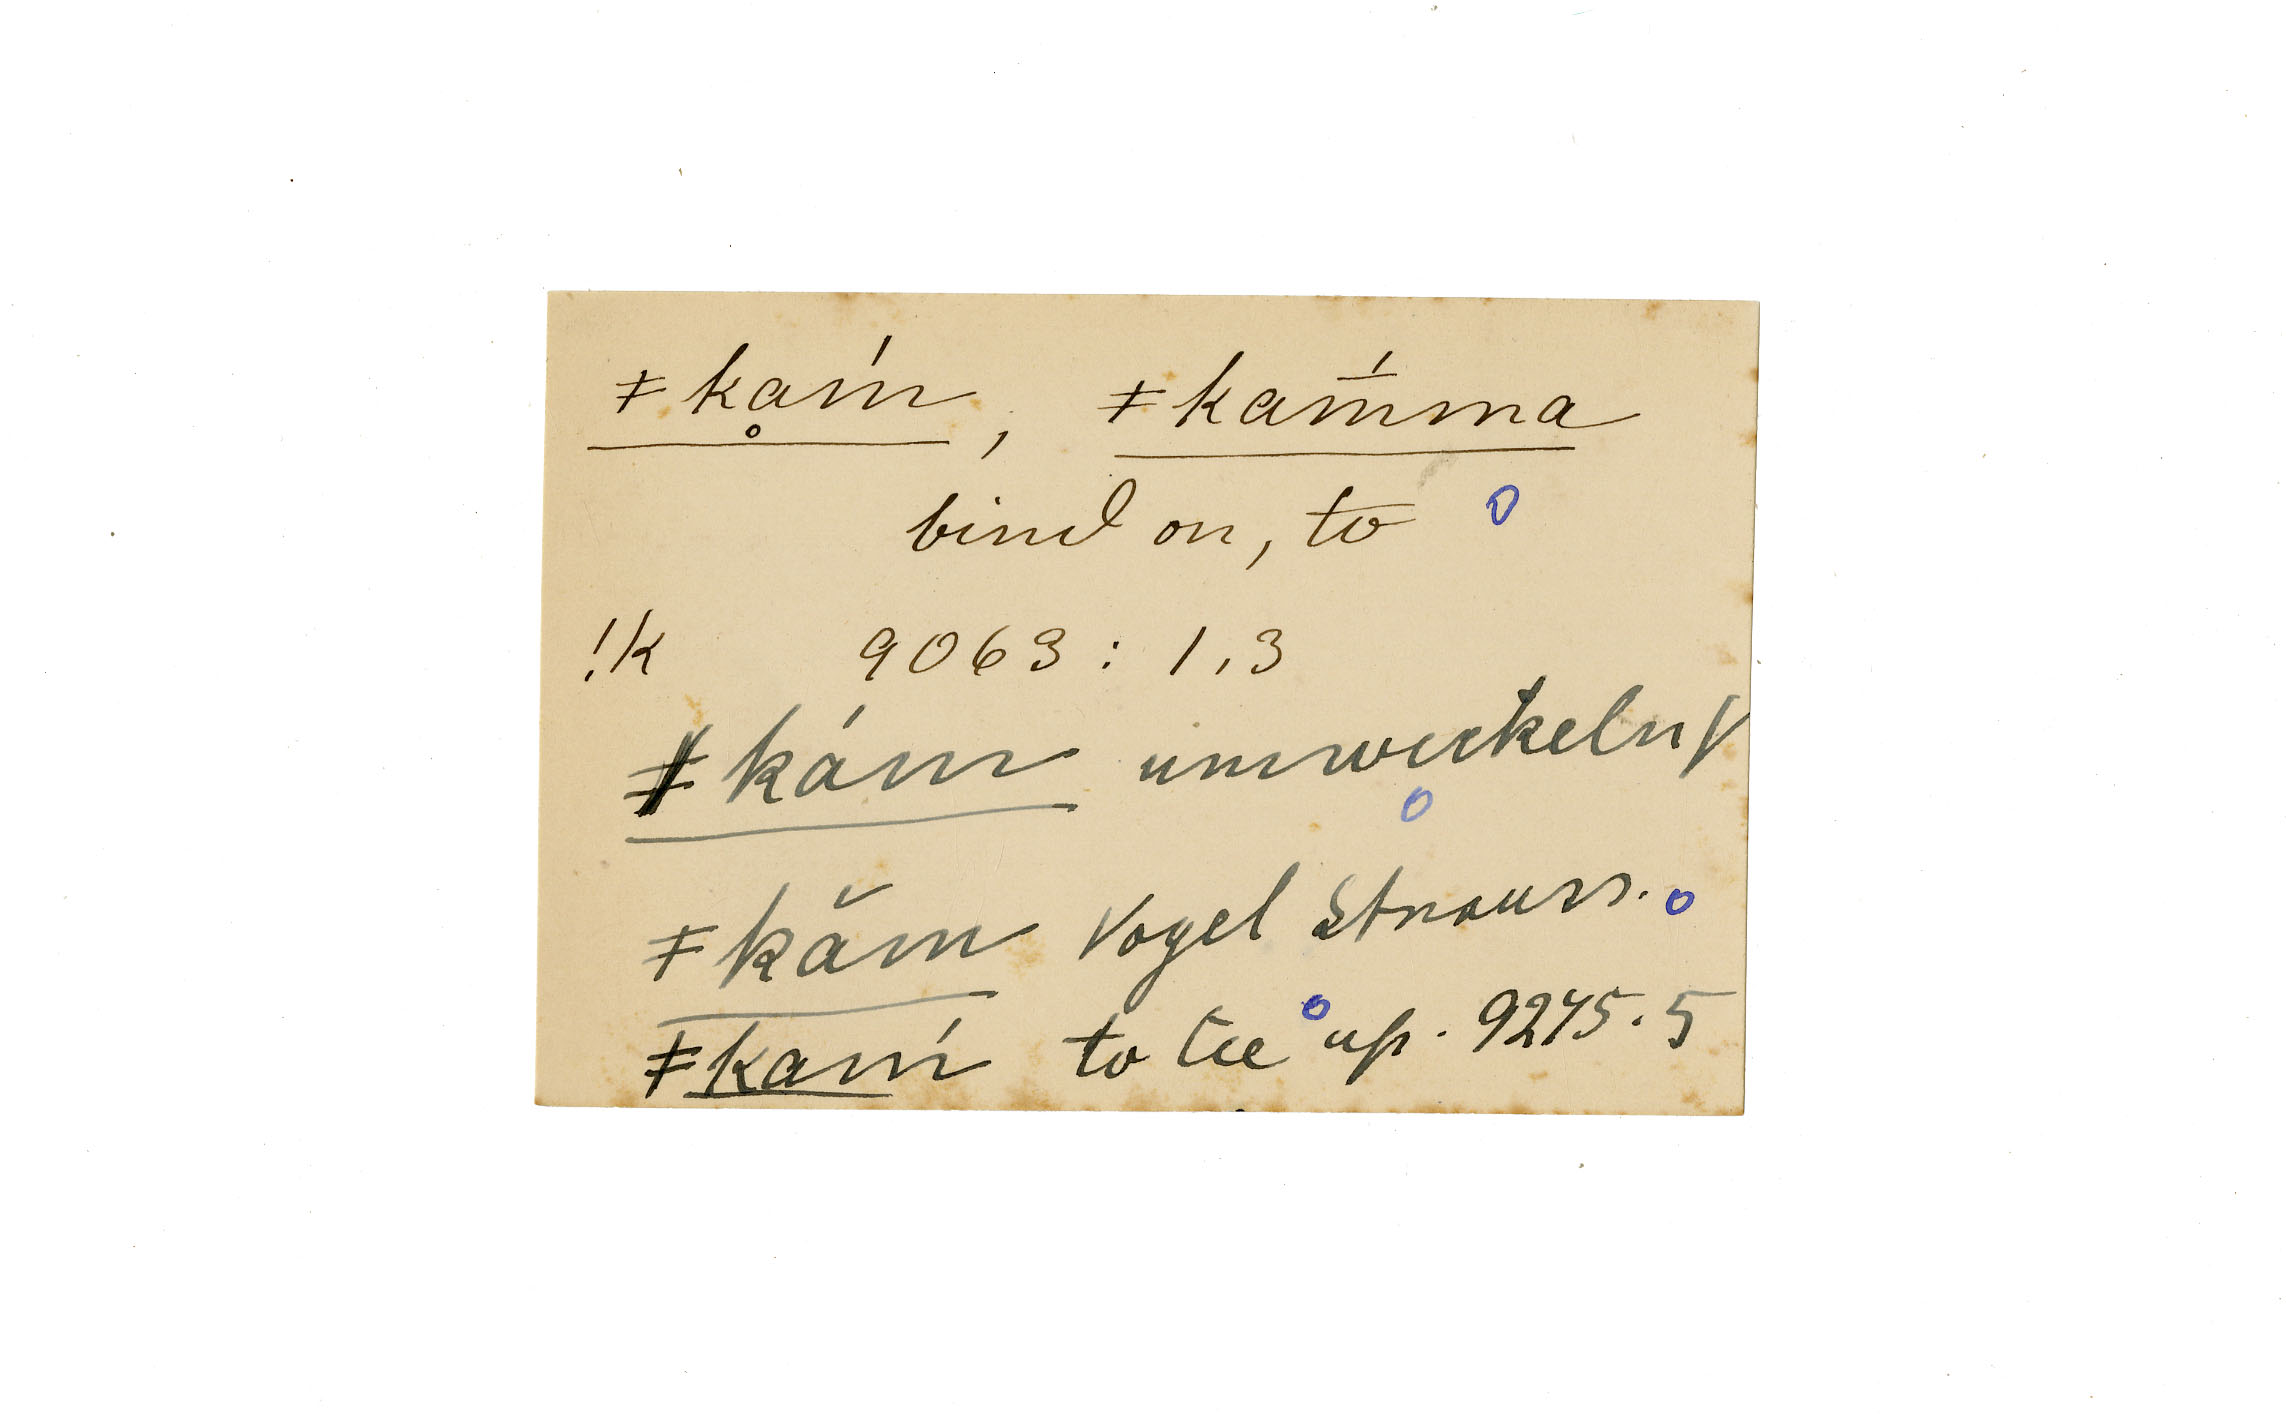 ǂkḁḿ, ǂkam̄́ma
bind on, to
!k 9063 : 1,3
ǂkám umwickeln
ǂkăm Vogel Strauss.
ǂkaḿ to tie up. 9275.5